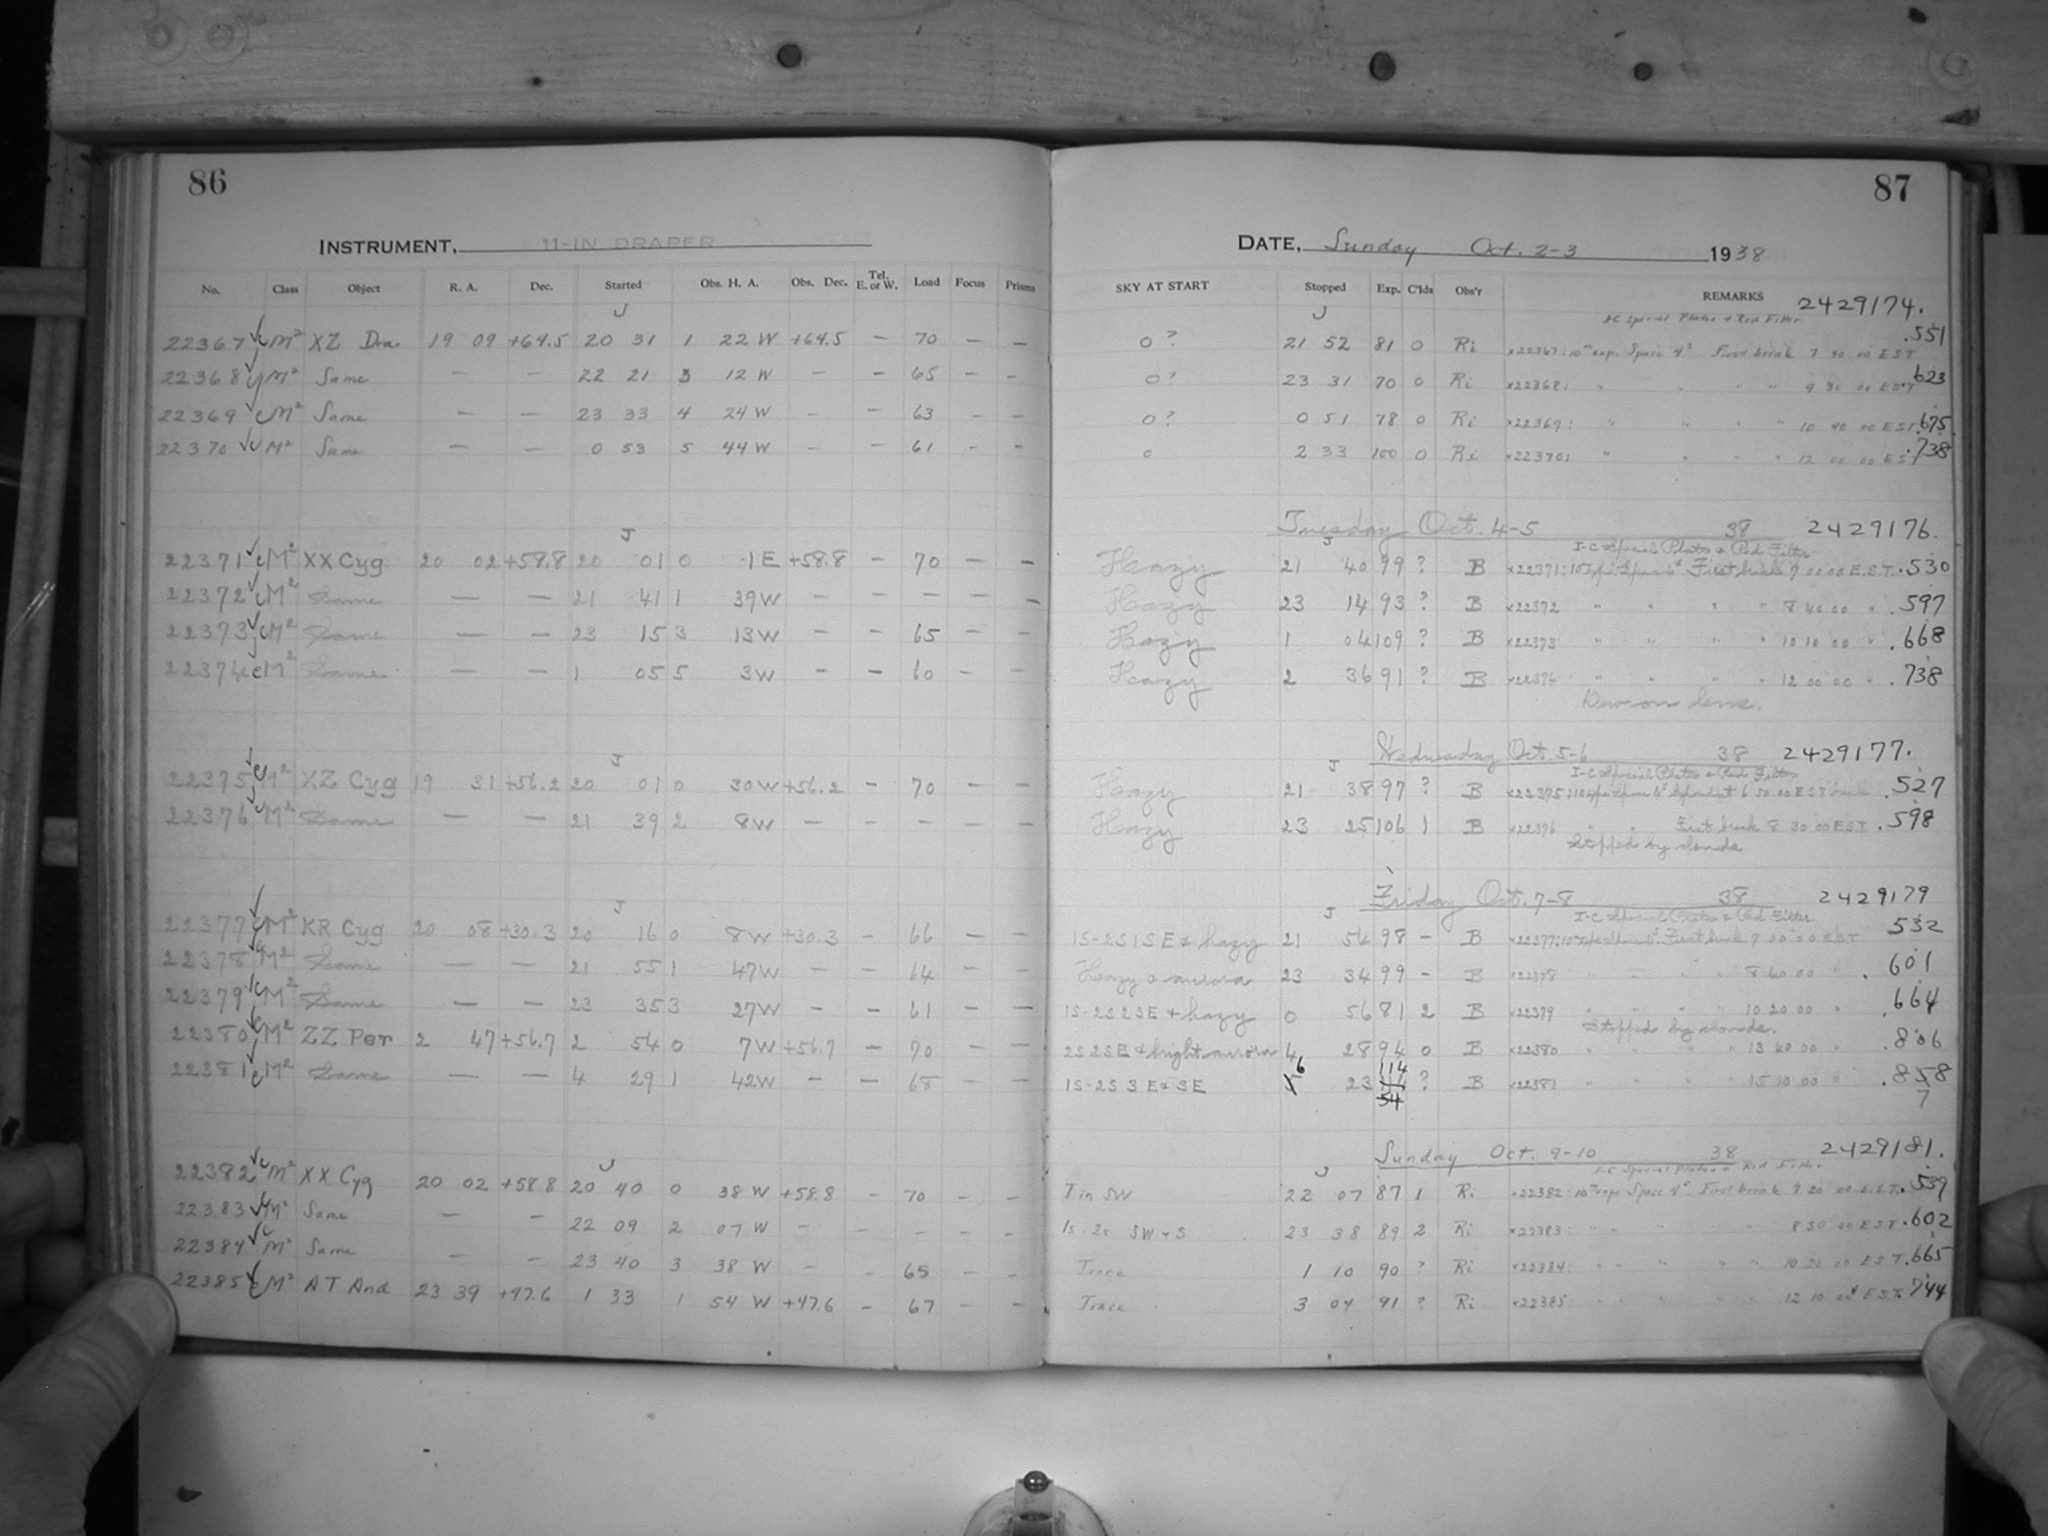 86
INSTRUMENT, 11-IN DRAPER
No. Class Object R. A. Dec. Started Obs. H. A. Obs. Dec. Tel. E. or W. Load Focus Prisms
J
22367 ✓ c M² XZ Dra 19 09 +64.5 20 31 1 22 W +64.5 — 70 — —
22368 ✓ c M² Same — — 22 21 3 12 W — — 65 — —
22369 ✓ c M² Same — — 23 33 4 24 W — — 63 — —
22370 ✓ c M² Same — — 0 53 5 44 W — — 61 — —
J
22371 ✓ c M² XX Cyg 20 02 +58.8 20 01 0 1 E +58.8 — 70 — —
22372 ✓ c M² Same — — 21 41 1 39 W — — — — —
22373 ✓ c M² Same — — 23 15 3 13 W — — 65 — —
22374 c M² Same — — 1 05 5 3 W — — 60 — —
J
22375 ✓ c M² XZ Cyg 19 31 +56.2 20 01 0 30 W +56.2 — 70 — —
22376 ✓ c M² Same — — 21 39 2 8 W — — — — —
J
22377 ✓ c M² KR Cyg 20 08 +30.3 20 16 0 8 W +30.3 — 66 — —
22378 ✓ c M² Same — — 21 55 1 47 W — — 64 — —
22379 ✓ c M² Same — — 23 35 3 27 W — — 61 — —
22380 ✓ c M² ZZ Per 2 47 +56.7 2 54 0 7 W +56.7 — 70 — —
22381 ✓ c M² Same — — 4 29 1 42 W — — 68 — —
J
22382 ✓ c M² XX Cyg 20 02 +58.8 20 40 0 38 W +58.8 — 70 — —
22383 ✓ c M² Same — — 22 09 2 07 W — — — — —
22384 ✓ c M² Same — — 23 40 3 38 W — — 65 — —
22385 ✓ c M² AT And 23 39 +47.6 1 33 1 54 W +47.6 — 67 — —
87
DATE, Sunday Oct. 2-3 1938
SKY AT START Stopped Exp. C'lds Obs'r REMARKS 2429174.
J I-C Special Plates + Red Filter
0? 21 52 81 0 Ri x22367: 10ᵐ exp. Space 4ˢ First break 7 40 00 EST .551
0? 23 31 70 0 Ri x22368: " " " " 9 30 00 EST .623
0? 0 51 78 0 Ri x22369: " " " " 10 40 00 EST .675
0 2 33 100 0 Ri x22370: " " " " 12 00 00 EST .738
Tuesday Oct. 4-5 38 2429176.
J I-C Special Plates + Red Filter
Hazy 21 40 99 ? B x22371: 10 exp. Space 4ˢ First break 7 00 00 E.S.T. .530
Hazy 23 14 93 ? B x22372 " " " " 8 40 00 " .597
Hazy 1 04 109 ? B x22373 " " " " 10 10 00 " .668
Hazy 2 36 91 ? B x22374 " " " " 12 00 00 " .738
Dew on lens.
Wednesday Oct. 5-6 38 2429177.
J I-C Special Plates + Red Filter
Hazy 21 38 97 ? B x22375: 6 50 00 EST .527
Hazy 23 25 106 1 B x22376 " " First break 8 30 00 EST .598
Stopped by clouds
Friday Oct. 7-8 38 2429179
J I-C Special Plates + Red Filter
1S-2S 1 S E & hazy 21 54 98 - B x22377: First break 7 00 00 EST 532
Hazy & aurora 23 34 99 - B x22378 " " " " 8 40 00 " .601
1S-2S 2 S E + hazy 0 56 81 2 B x22379 " " " " 10 20 00 " .664
Stopped by clouds.
2S 2 S E & bright aurora 4 28 94 0 B x22380 " " " " 13 40 00 " .806
1S-2S 3 E & SE 6 23 114 ? B x22381 " " " " 15 10 00 " .858
54 7
Sunday Oct. 9-10 38 2429181.
J I-C Special Plates + Red Filter
T in SW 22 07 87 1 Ri x22382: 10ᵐ exp. Space 4ˢ First break 7 20 00 E.S.T. .539
1s-2s SW + S 23 38 89 2 Ri x22383: " " " " 8 50 00 EST .602
Trace 1 10 90 ? Ri x22384: " " " " 10 20 00 EST .665
Trace 3 04 91 ? Ri x22385: " " " " 12 10 00 EST .744